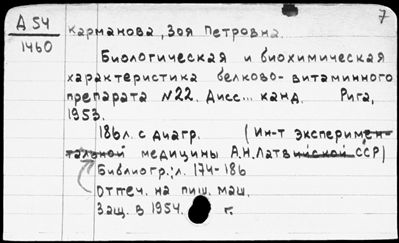 7
Д 54
1460
Карманова, Зоя Петровна.
Биологическая и биохимическая
характеристика белково-витаминного
препарата №22. Дисс... канд. Рига,
1953.
186л. с диагр. (Ин-т эксперимен-
тальной медицины А.Н.Латвийской ССР)
Библиогр.: л. 174-186
Отпеч. на пиш. маш.
Защ. в 1954. г.